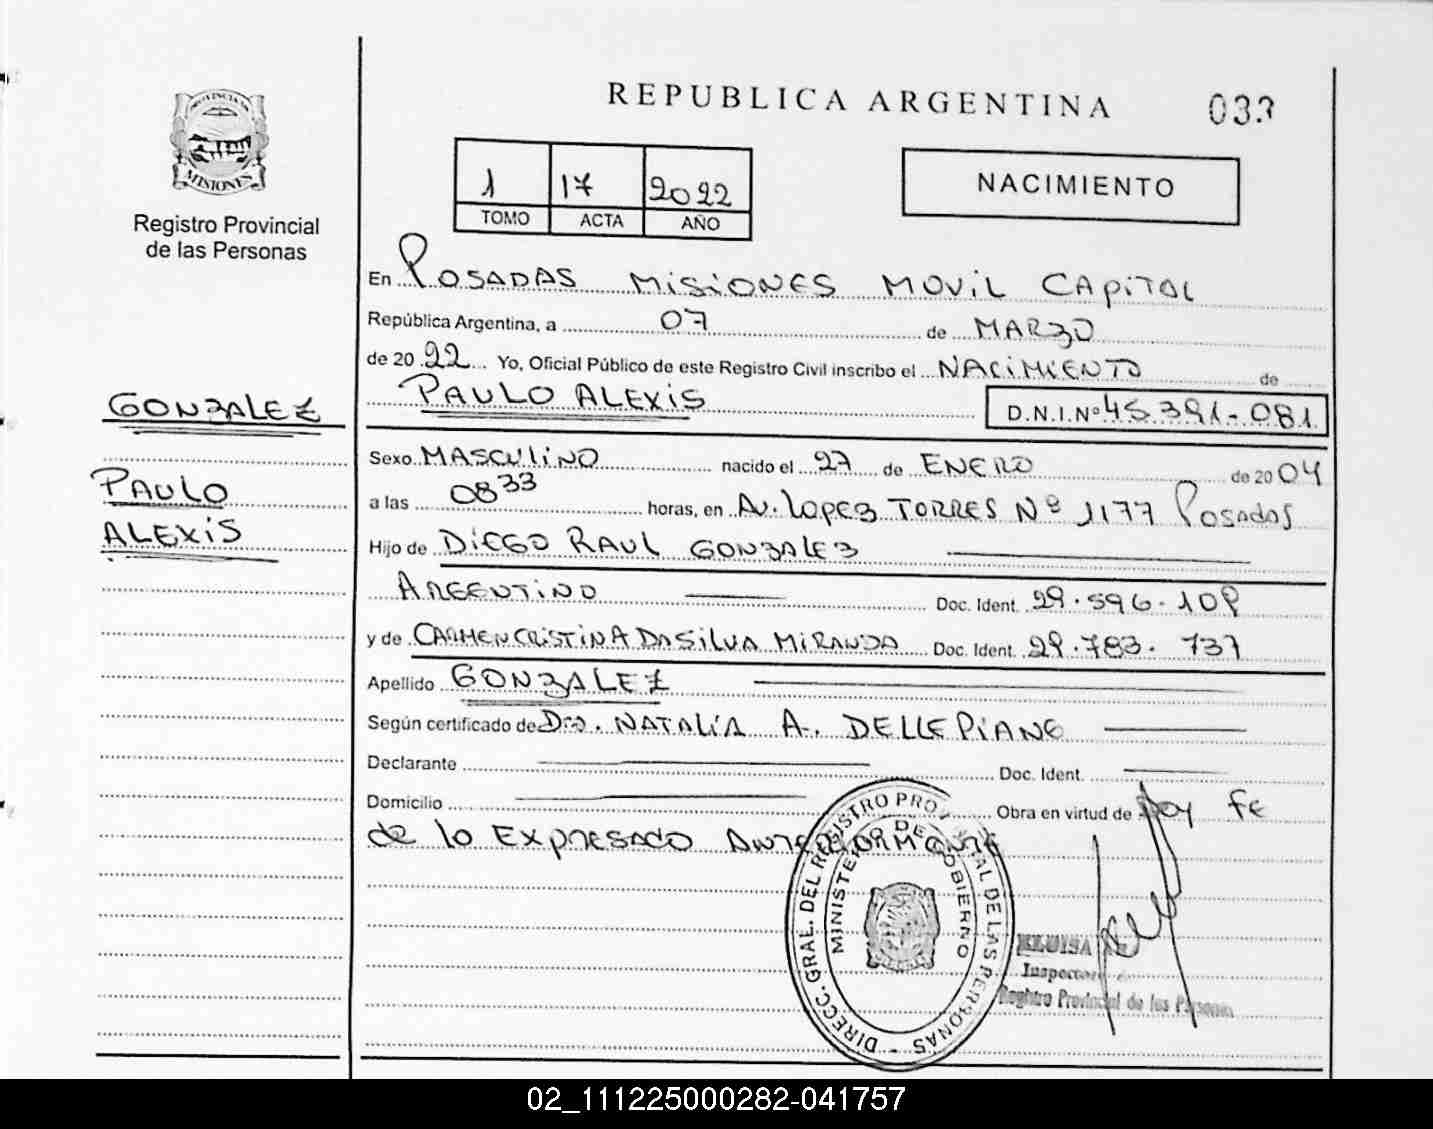 PROVINCIA DE
MISIONES
Registro Provincial
de las Personas
GONZALEZ
PAULO
ALEXIS
REPUBLICA ARGENTINA
033
1 17 2022
TOMO ACTA AÑO
NACIMIENTO
En POSADAS MISIONES MOVIL CAPITAL
República Argentina, a 07 de MARZO
de 20 22 Yo, Oficial Público de este Registro Civil inscribo el NACIMIENTO de
PAULO ALEXIS D.N.I.Nº 45.391-081
Sexo MASCULINO nacido el 27 de ENERO de 20 04
a las 08 33 horas, en AV. LOPEZ TORRES Nº 1177 POSADAS
Hijo de DIEGO RAUL GONZALEZ
ARGENTINO Doc. Ident. 29.596.108
y de CARMEN CRISTINA DA SILVA MIRANDA Doc. Ident. 29.783.737
Apellido GONZALEZ
Según certificado de Dra. NATALIA A. DELLEPIANE
Declarante Doc. Ident.
Domicilio Obra en virtud de Doy FE
de lo EXPRESADO ANTERIORMENTE
DIRECC. GRAL. DEL REGISTRO PROVINCIAL DE LAS PERSONAS -
MINISTERIO DE GOBIERNO
ELOISA
Inspectora
Registro Provincial de las Personas
02_111225000282-041757